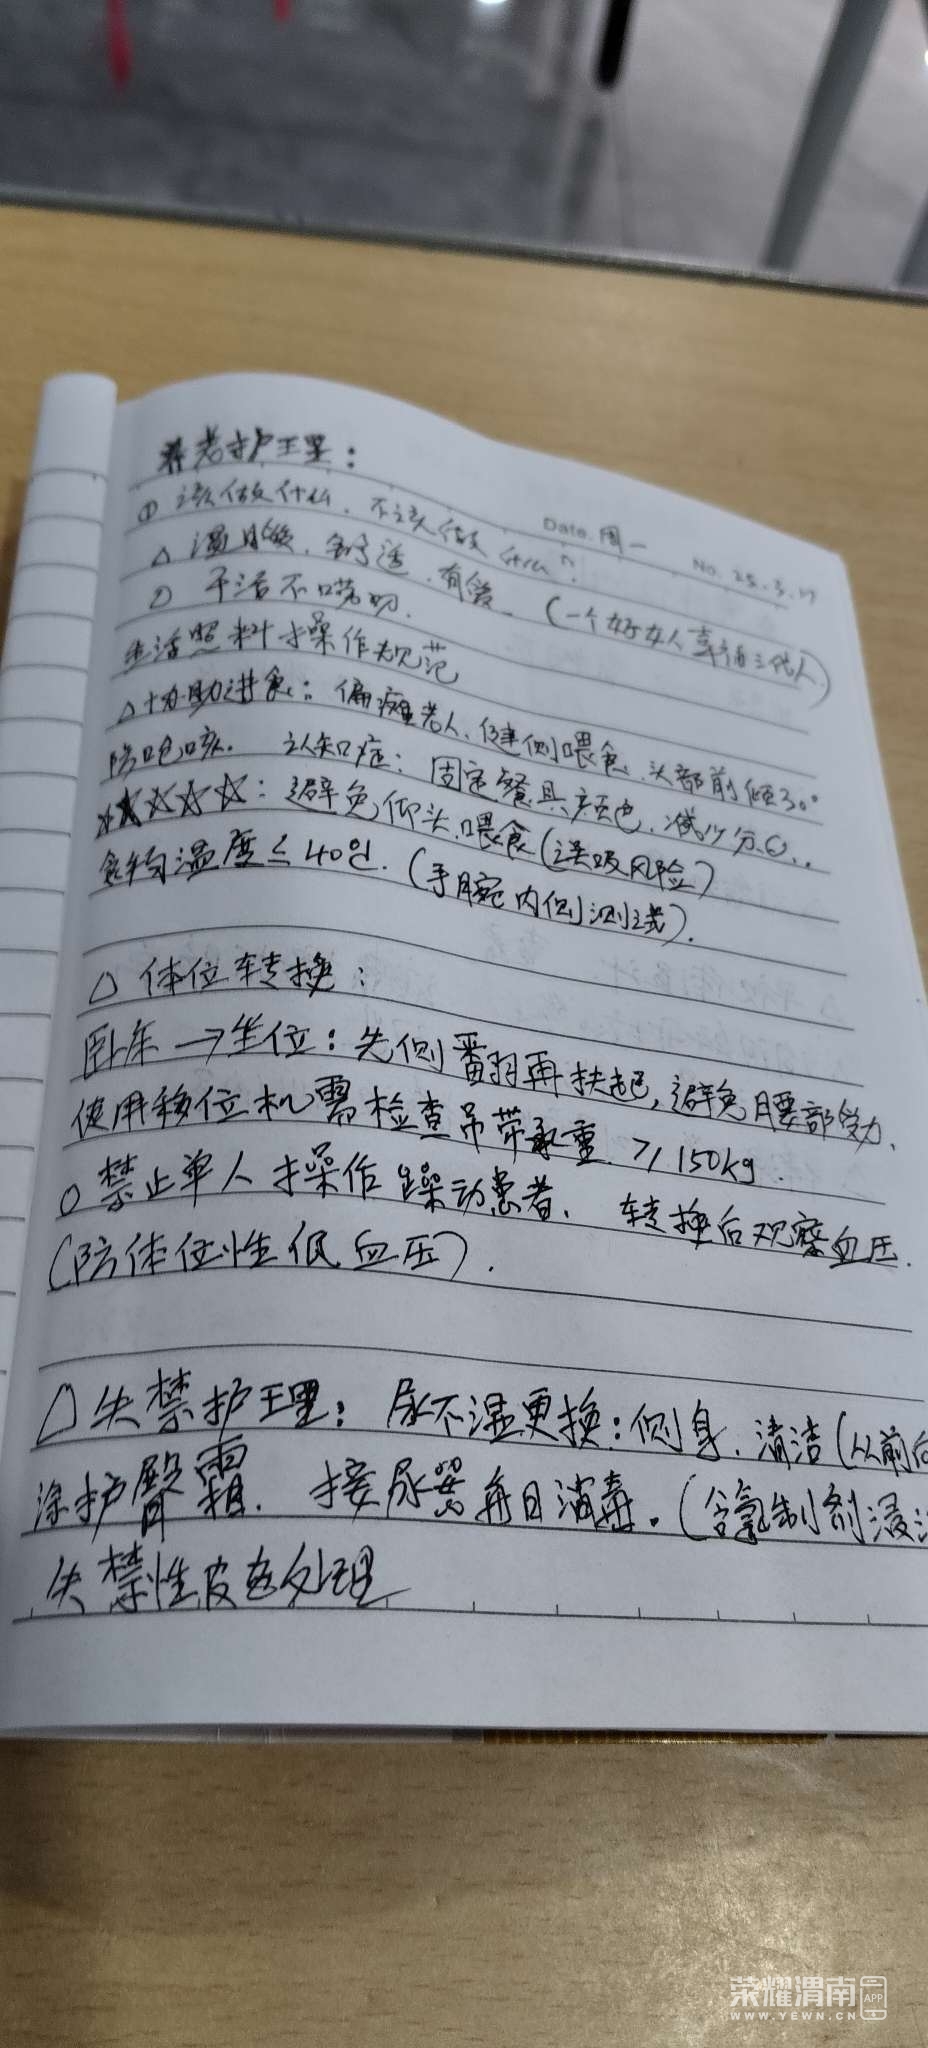 Date. 周一
No. 25.3.17
养老护理：
① 该做什么，不该做什么？
△ 温暖，舒适，有爱。(一个好女人幸福三代人)
② 干活不唠叨．
生活照料操作规范
△协助进食：偏瘫老人，健侧喂食，头部前倾30°
防呛咳． 认知症：固定餐具颜色，减少分心..
☆☆☆☆☆：避免仰头喂食(误吸风险)
食物温度≤40℃．(手腕内侧测试)．
△ 体位转换：
卧床→坐位：先侧翻再扶起，避免腰部受力．
使用移位机需检查吊带承重．≥150kg．
○禁止单人操作躁动患者． 转换后观察血压．
(防体位性低血压)．
△失禁护理：尿不湿更换：侧身，清洁(从前向
涂护臀霜． 接尿器每日消毒。(含氯制剂浸
失禁性皮炎处理
荣耀渭南APP
WWW.YEWN.CN